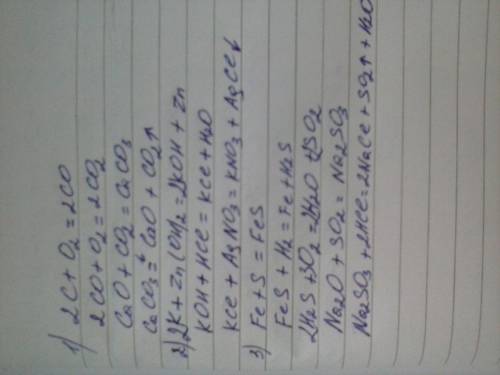 1) 2C + O2 = 2CO
2CO + O2 = 2CO2
CaO + CO2 = CaCO3
CaCO3 =t CaO + CO2↑
2) 2K + Zn(OH)2 = 2KOH + Zn
KOH + HCl = KCl + H2O
KCl + AgNO3 = KNO3 + AgCl↓
3) Fe + S = FeS
FeS + H2 = Fe + H2S
2H2S + 3O2 = 2H2O + 2SO2
Na2O + SO2 = Na2SO3
Na2SO3 + 2HCl = 2NaCl + SO2↑ + H2O